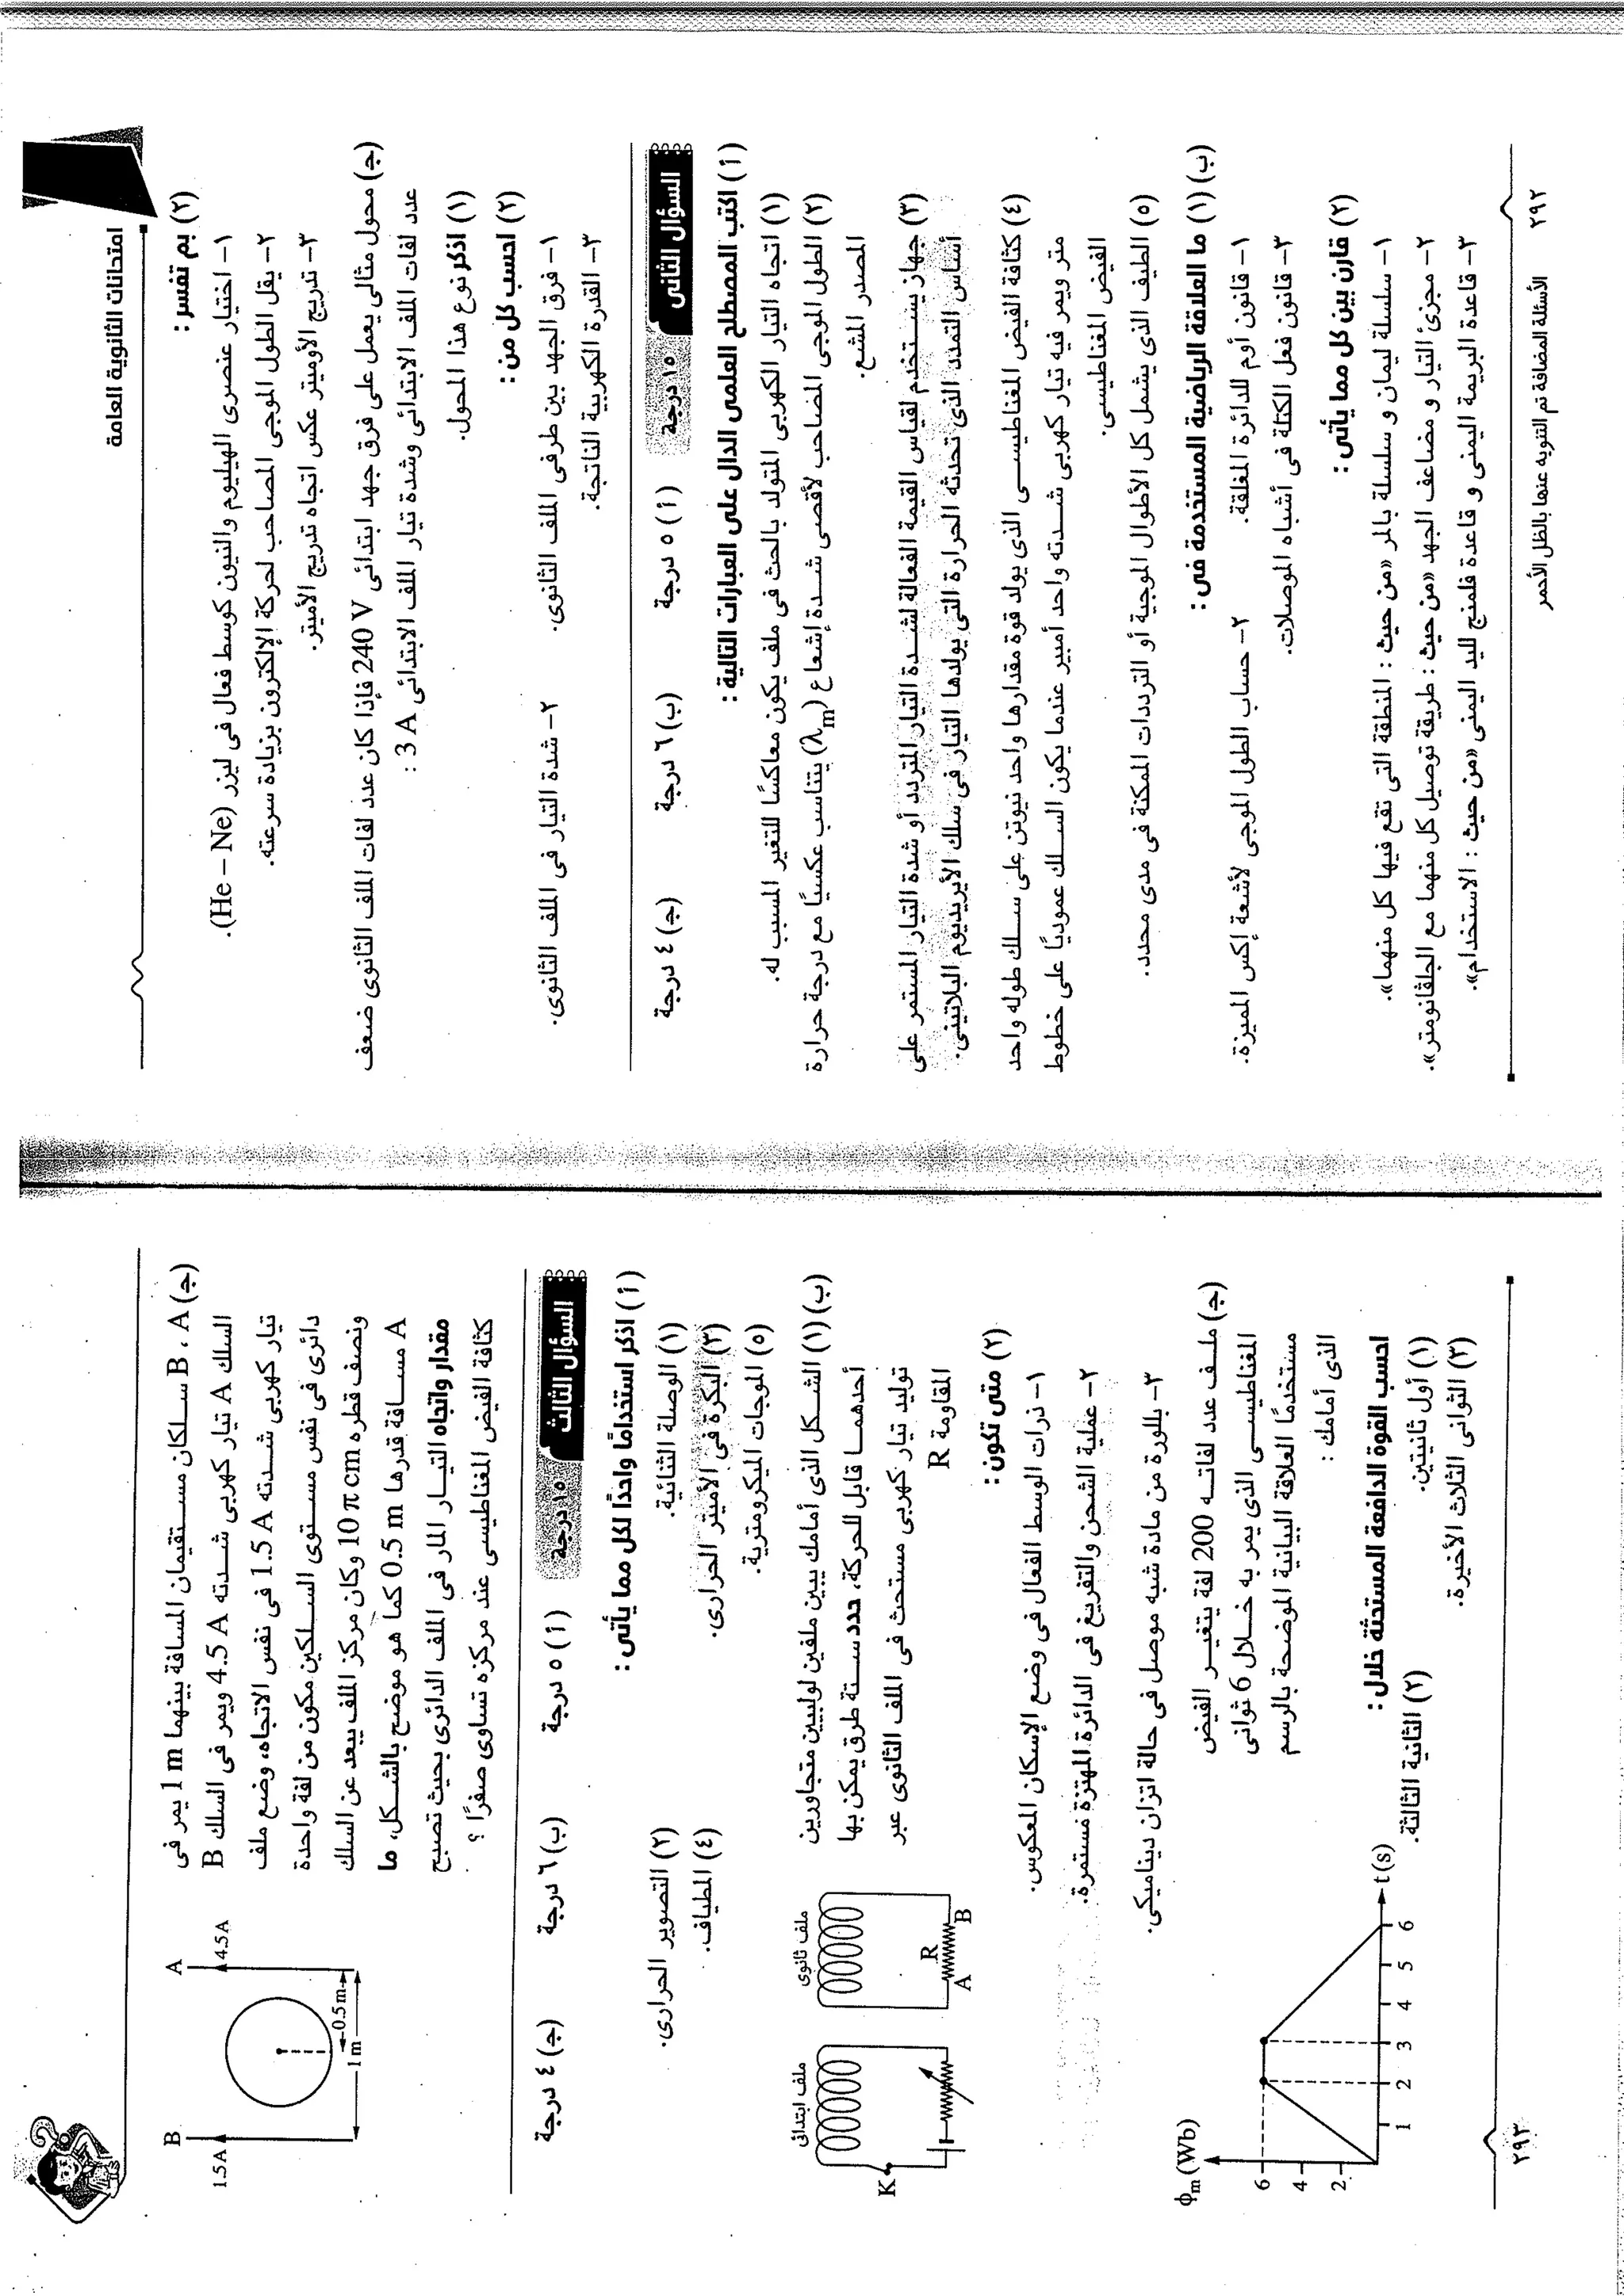 امتحانات الثانوية العامة
(٢) بم تفسر :
١- اختيار عنصرى الهيليوم والنيون كوسط فعال فى ليزر (He – Ne).
٢- يقل الطول الموجى المصاحب لحركة الإلكترون بزيادة سرعته.
٣- تدريج الأوميتر عكس اتجاه تدريج الأميتر.
(جـ) محول مثالى يعمل على فرق جهد ابتدائى 240 V فإذا كان عدد لفات الملف الثانوى ضعف
عدد لفات الملف الابتدائى وشدة تيار الملف الابتدائى 3 A :
(١) اذكر نوع هذا المحول.
(٢) احسب كل من :
١- فرق الجهد بين طرفى الملف الثانوى. ٢- شدة التيار فى الملف الثانوى.
٣- القدرة الكهربية الناتجة.
السؤال الثانى ١٥ درجة (أ) ٥ درجة (ب) ٦ درجة (جـ) ٤ درجة
(أ) اكتب المصطلح العلمى الدال على العبارات التالية :
(١) اتجاه التيار الكهربى المتولد بالحث فى ملف يكون معاكسًا للتغير المسبب له.
(٢) الطول الموجى المصاحب لأقصى شدة إشعاع (λm) يتناسب عكسيًا مع درجة حرارة
المصدر المشع.
(٣) جهاز يستخدم لقياس القيمة الفعالة لشدة التيار المتردد أو شدة التيار المستمر على
أساس التمدد الذى تحدثه الحرارة التى يولدها التيار فى سلك الأيريديوم البلاتينى.
(٤) كثافة الفيض المغناطيسى الذى يولد قوة مقدارها واحد نيوتن على سلك طوله واحد
متر ويمر فيه تيار كهربى شدته واحد أمبير عندما يكون السلك عموديًا على خطوط
الفيض المغناطيسى.
(٥) الطيف الذى يشمل كل الأطوال الموجية أو الترددات الممكنة فى مدى محدد.
(ب) (١) ما العلاقة الرياضية المستخدمة فى :
١- قانون أوم للدائرة المغلقة. ٢- حساب الطول الموجى لأشعة إكس المميزة.
٣- قانون فعل الكتلة فى أشباه الموصلات.
(٢) قارن بين كل مما يأتى :
١- سلسلة ليمان و سلسلة بالمر «من حيث : المنطقة التى تقع فيها كل منهما».
٢- مجزئ التيار و مضاعف الجهد «من حيث : طريقة توصيل كل منهما مع الجلڤانومتر».
٣- قاعدة البريمة اليمنى و قاعدة فلمنج لليد اليمنى «من حيث : الاستخدام».
الأسئلة المضافة تم التنويه عنها بالظل الأحمر
٢٩٢
(جـ) B ، A سلكان مستقيمان المسافة بينهما 1 m يمر فى
السلك A تيار كهربى شدته 4.5 A ويمر فى السلك B
تيار كهربى شدته 1.5 A فى نفس الاتجاه، وضع ملف
دائرى فى نفس مستوى السلكين مكون من لفة واحدة
ونصف قطره 10 π cm وكان مركز الملف يبعد عن السلك
A مسافة قدرها 0.5 m كما هو موضح بالشكل، ما
مقدار واتجاه التيار المار فى الملف الدائرى بحيث تصبح
كثافة الفيض المغناطيسى عند مركزه تساوى صفرًا ؟
B
A
1.5A
4.5A
0.5 m
1 m
السؤال الثالث ١٥ درجة (أ) ٥ درجة (ب) ٦ درجة (جـ) ٤ درجة
(أ) اذكر استخدامًا واحدًا لكل مما يأتى :
(١) الوصلة الثنائية. (٢) التصوير الحرارى.
(٣) البكرة فى الأميتر الحرارى. (٤) المطياف.
(٥) الموجات الميكرومترية.
(ب) (١) الشكل الذى أمامك يبين ملفين لولبيين متجاورين
أحدهما قابل للحركة، حدد ستة طرق يمكن بها
توليد تيار كهربى مستحث فى الملف الثانوى عبر
المقاومة R
ملف ابتدائى
ملف ثانوى
K
R
A
B
(٢) متى تكون :
١- ذرات الوسط الفعال فى وضع الإسكان المعكوس.
٢- عملية الشحن والتفريغ فى الدائرة المهتزة مستمرة.
٣- بللورة من مادة شبه موصل فى حالة اتزان ديناميكى.
(جـ) ملف عدد لفاته 200 لفة يتغير الفيض
المغناطيسى الذى يمر به خلال 6 ثوانى
مستخدمًا العلاقة البيانية الموضحة بالرسم
الذى أمامك :
احسب القوة الدافعة المستحثة خلال :
(١) أول ثانيتين. (٢) الثانية الثالثة.
(٣) الثوانى الثلاث الأخيرة.
ϕm (Wb)
6
4
2
1 2 3 4 5 6
t (s)
٢٩٣